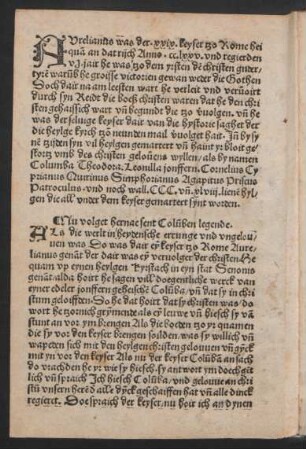 AUrelianus was der .xxix. keyser tzo Rome hei
quā an dat rijch Anno . cc.lxxv. vnd regierden
v.j. jair he was tzo dem yrsten dē christen guder-
tyrē warūb he groisse victorien gewan weder die Gothen
Doch dair na am lesten wart he verleit vnd veruoirt
durch syn Reidt die boeß christen waren dat he den chri
sten gehaissich wart vn̄ begunde die tzo vuolgen. vn̄ he
was der seluige keyser dair van die hystorie sagher der
der heylge kyrch tzo neunden mail vuolget hait. Jn̄ by sy
nē zijden syn vil heylgen gemartert vn̄ haint yr bloit ge-
stortz vmb des christen gelouens wyllen. als by namen
Columba Theodora. Leonilla jonffern. Cornelius Cy
prianus Quirinus Simphorianus Agapitus Priscus
Patroculus. vnd noch wall. CCC. vn̄. xlviij. lieue hyl-
gen die all vnder dem keyser gemartert synt worden.
Nun volget hernae sent Colūben legende.
ALs die werlt in heydensche errunge vnd vngelou-
uen was Do was dair ey keyser tzo Rome Aure-
lianus genāt der dair was ey veruolger der christen. He
quam vp eynen heylgen Kyrstach in eyn stat Senonis
genāt alda hoirt he sagen vill doegentliche werck van
eyner edeler jonffern geheischē Coluba. vn̄ dat sy in chri
stum geloifften. So he dat hoirt dat sy christen was do
wort he tzornich grymende als ey leuwe vn̄ hiesch sy vā
stunt an vor ym brengen Als die boeden tzo yr quamen
die sy vor den keyser brengen solden. was sy willich vn̄
wapeden sich mit den heylgen christen gelouen vn̄ gyck
mit yn vor den keyser Als nu der keyser Colūbā an sach
do vrachden he yr wie sy hiesch. sy antwort ym doechget
lich vn̄ spraich Jch hiesch Coluba. vnd gelouue an chri
stū vnsern herē d alle dyck geschaiffen hat vn̄ alle dinck
regieret. Doe spraich der keyser. nu hoir ich an dynen